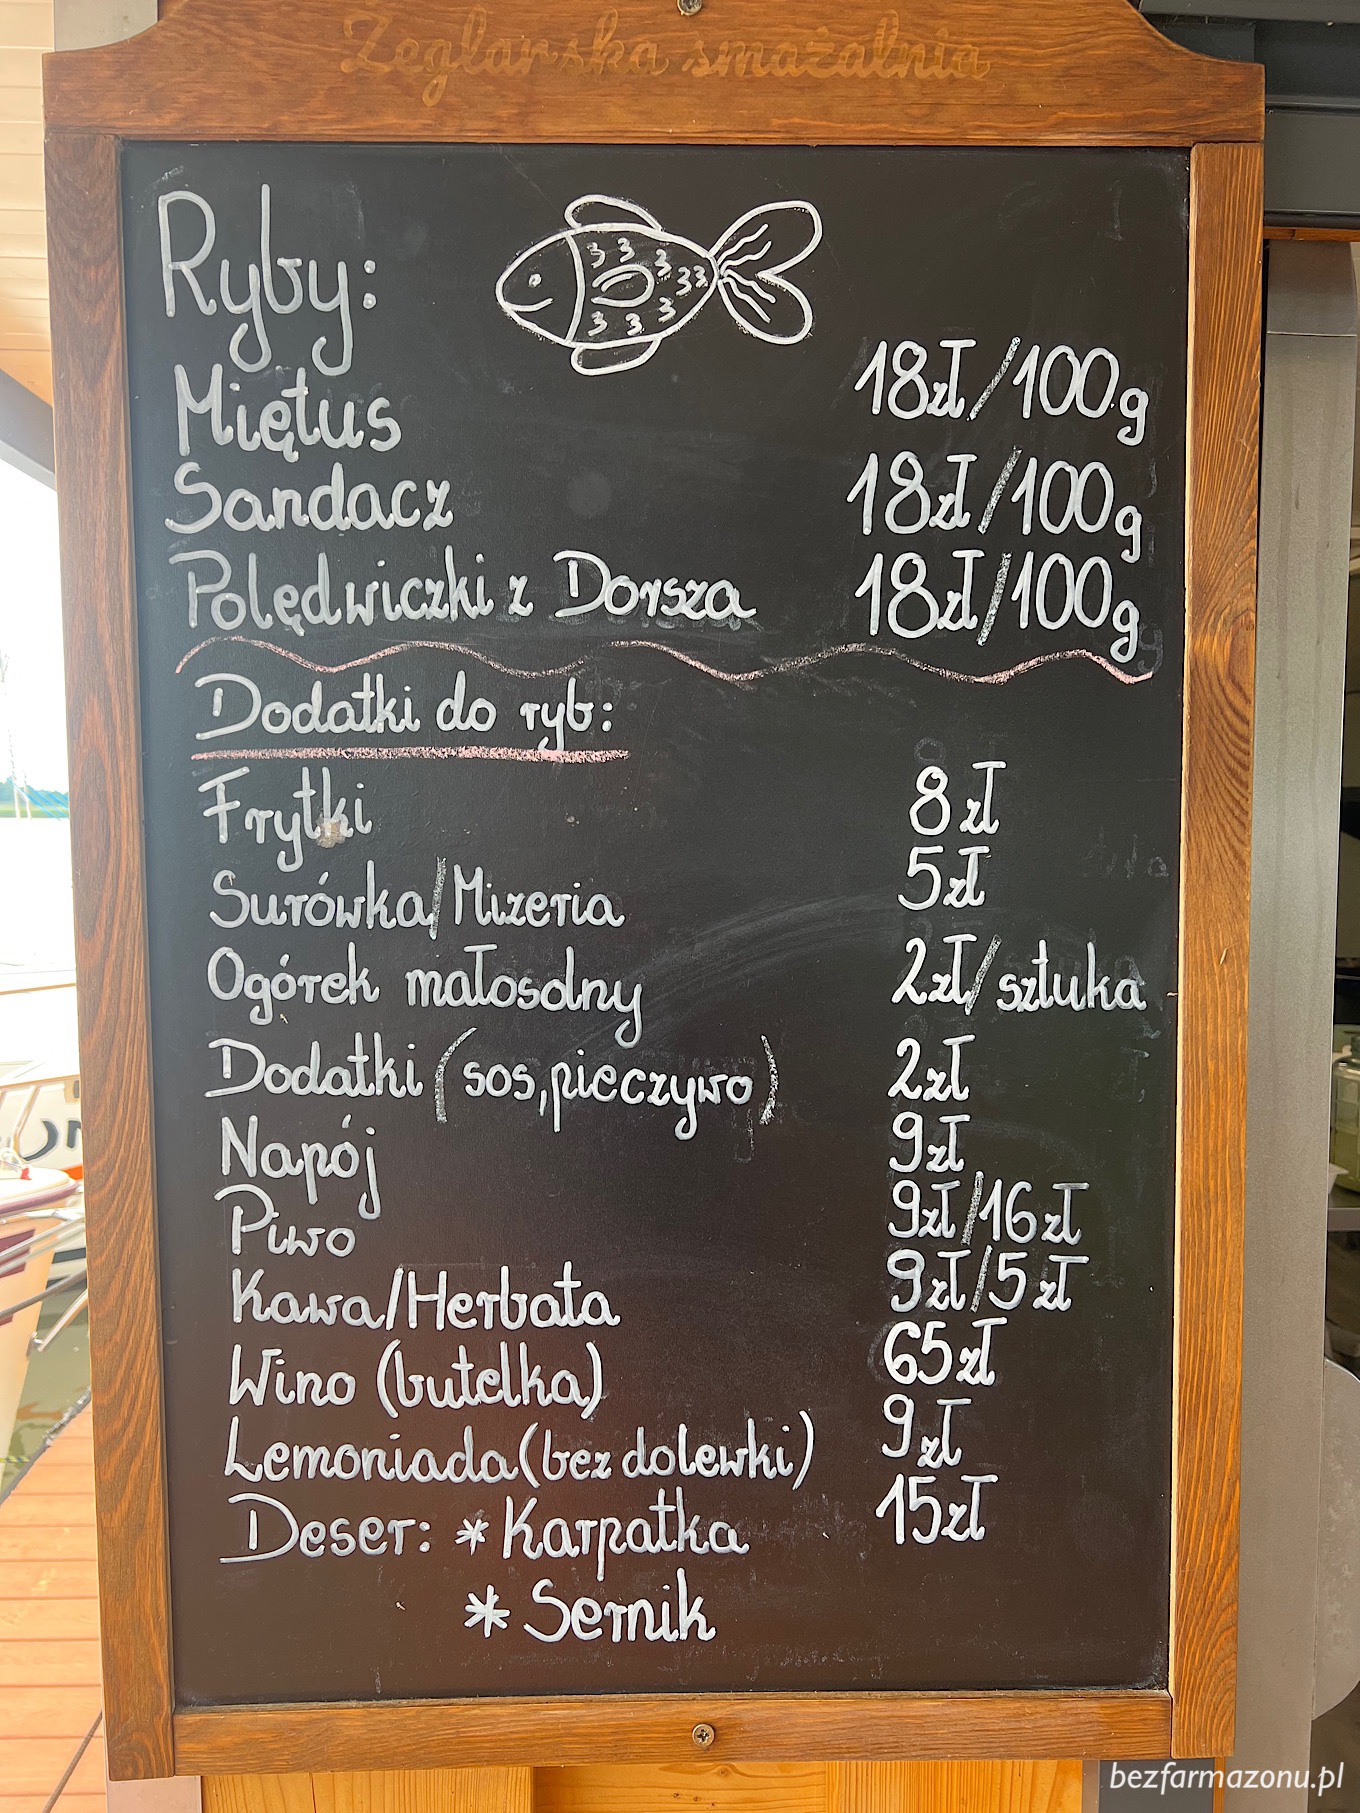 Żeglarska smażalnia
Ryby:
Miętus 18zł/100g
Sandacz 18zł/100g
Polędwiczki z Dorsza 18zł/100g
Dodatki do ryb:
Frytki 8zł
Surówka/Mizeria 5zł
Ogórek małosolny 2zł/sztuka
Dodatki (sos, pieczywo) 2zł
Napój 9zł
Piwo 9zł/16zł
Kawa/Herbata 9zł/5zł
Wino (butelka) 65zł
Lemoniada (bez dolewki) 9zł
Deser: * Karpatka 15zł
* Sernik
bezfarmazonu.pl